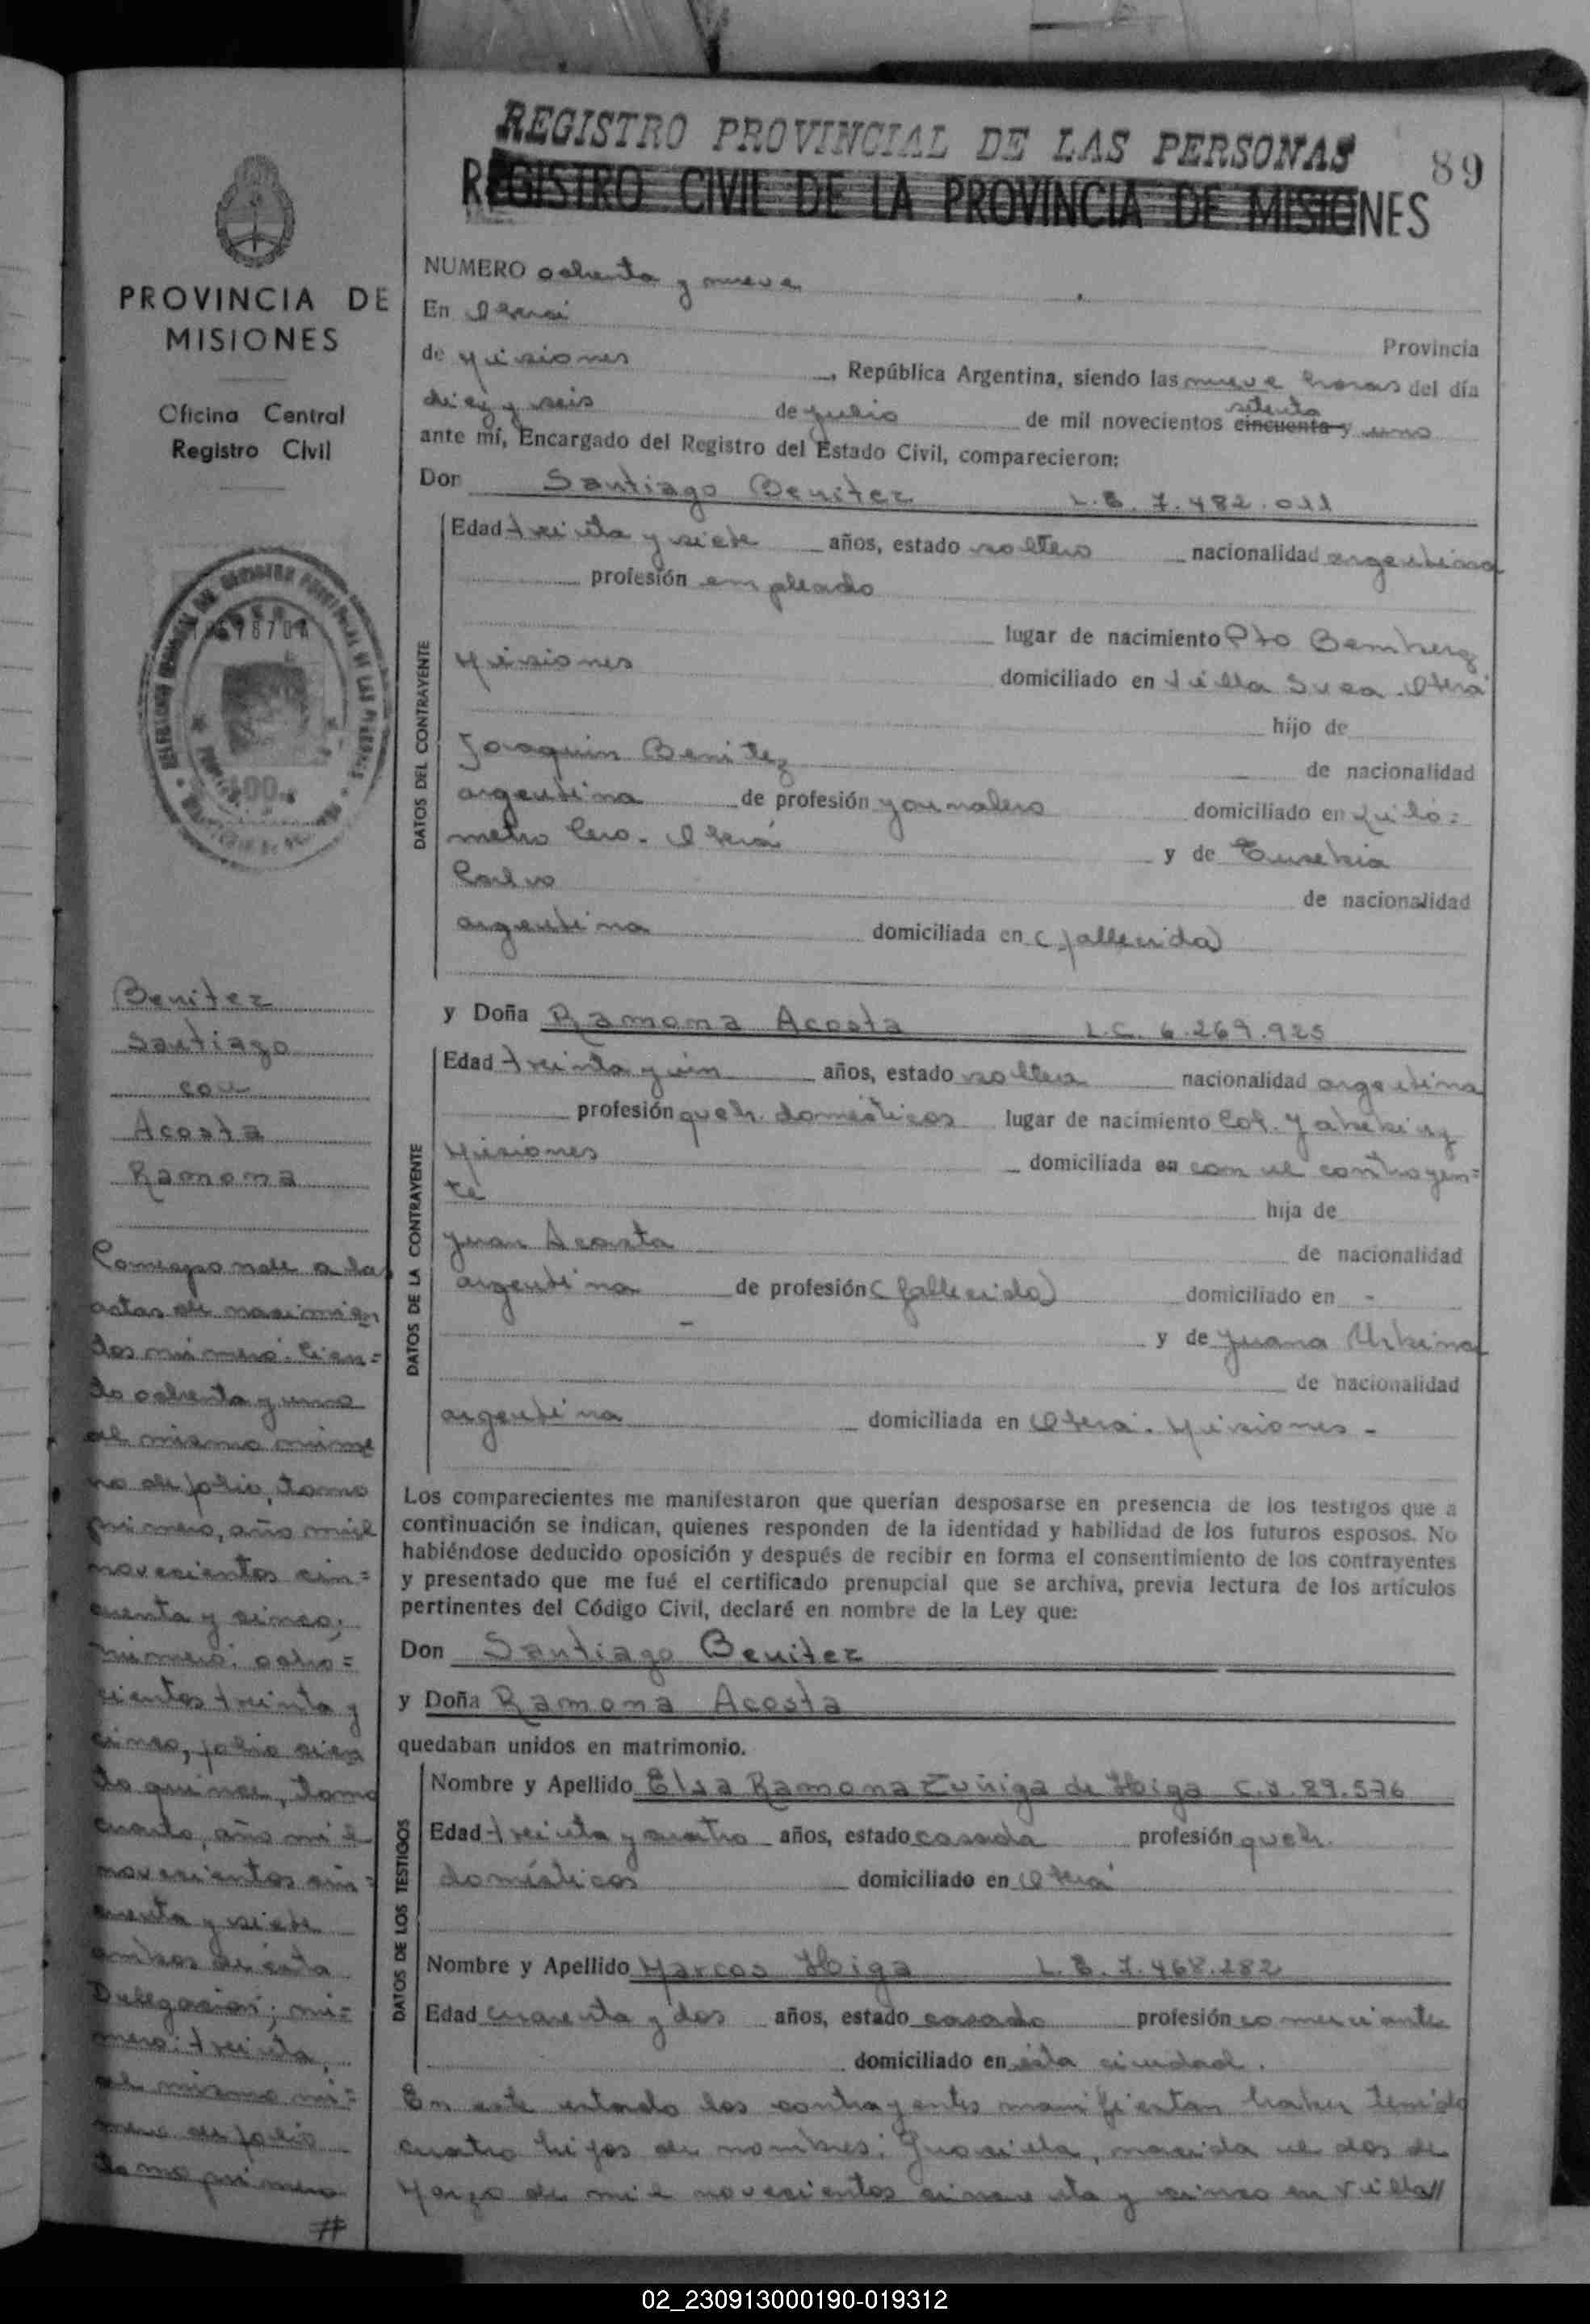 REGISTRO PROVINCIAL DE LAS PERSONAS
89
REGISTRO CIVIL DE LA PROVINCIA DE MISIONES
PROVINCIA DE
MISIONES
Oficina Central
Registro Civil
100
Benitez
Santiago
con
Acosta
Ramona
Corresponde a las
actas de nacimien
tos número: Cien=
to ochenta y uno
al mismo núme
ro de folio, tomo
primero, año mil
novecientos cin=
cuenta y cinco;
número: ocho=
cientos treinta y
cinco, folio cien
to quince, tomo
cuarto, año mil
novecientos cin=
cuenta y siete
ambos de esta
Delegación; nú=
mero: treinta,
al mismo nú=
mero de folio
tomo primero
#
NUMERO ochenta y nueve
En Oberá
Provincia
de Misiones, República Argentina, siendo las nueve horas del día
diez y seis de julio de mil novecientos cincuenta setenta y uno
ante mí, Encargado del Registro del Estado Civil, comparecieron:
Don Santiago Benitez L.E. 7.482.011
DATOS DEL CONTRAYENTE
Edad treinta y siete años, estado soltero nacionalidad argentina
profesión empleado
lugar de nacimiento Pto Bemberg
Misiones domiciliado en Villa Svea. Oberá
hijo de
Joaquin Benitez de nacionalidad
argentina de profesión jornalero domiciliado en Kiló=
metro Cero. Oberá y de Eusebia
Calvo de nacionalidad
argentina domiciliada en (fallecida)
y Doña Ramona Acosta L.C. 6.269.925
DATOS DE LA CONTRAYENTE
Edad treinta y un años, estado soltera nacionalidad argentina
profesión queh. domésticos lugar de nacimiento Col. Yabebiry
Misiones domiciliada en con el contrayen=
te hija de
Juan Acosta de nacionalidad
argentina de profesión (fallecido) domiciliado en -
- y de Juana Urbina
de nacionalidad
argentina domiciliada en Oberá. Misiones -
Los comparecientes me manifestaron que querían desposarse en presencia de los testigos que a
continuación se indican, quienes responden de la identidad y habilidad de los futuros esposos. No
habiéndose deducido oposición y después de recibir en forma el consentimiento de los contrayentes
y presentado que me fué el certificado prenupcial que se archiva, previa lectura de los artículos
pertinentes del Código Civil, declaré en nombre de la Ley que:
Don Santiago Benitez
y Doña Ramona Acosta
quedaban unidos en matrimonio.
DATOS DE LOS TESTIGOS
Nombre y Apellido Elsa Ramona Zuñiga de Higa C.I. 89.576
Edad treinta y cuatro años, estado casada profesión queh.
domésticos domiciliado en Oberá
Nombre y Apellido Marcos Higa L.E. 7.468.282
Edad cuarenta y dos años, estado casado profesión comerciante
domiciliado en esta ciudad.
En este estado los contrayentes manifiestan haber tenido
cuatro hijos de nombres: Graciela, nacida el dos de
Marzo de mil novecientos cincuenta y cinco en Villa//
02_230913000190-019312